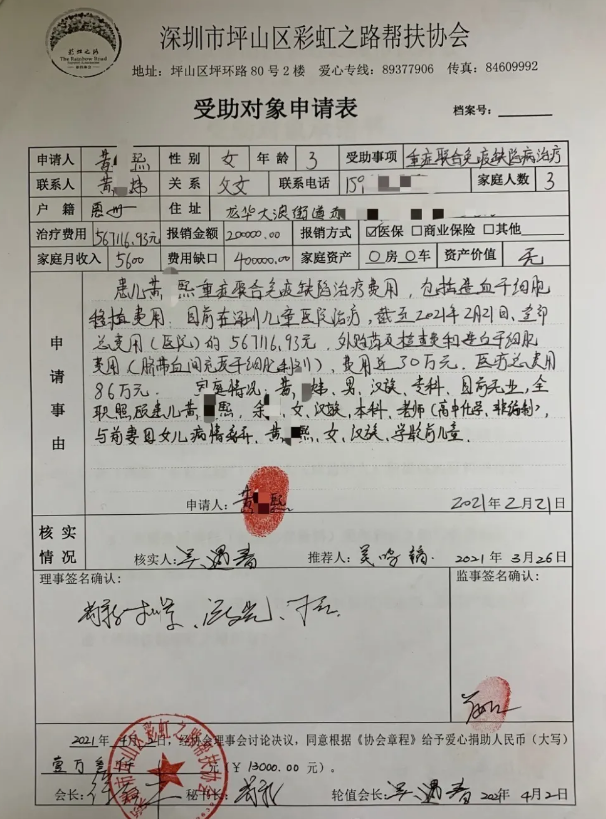 彩虹之路
The Rainbow Road
深圳市坪山区彩虹之路帮扶协会
地址：坪山区坪环路80号2楼 爱心专线：89377906 传真：84609992
受助对象申请表
档案号：
申请人 黄 熙 性别 女 年龄 3 受助事项 重症联合免疫缺陷病治疗
联系人 黄 关系 父女 联系电话 159 家庭人数 3
户籍 惠州 住址 龙华大浪街道
治疗费用 567116.93元 报销金额 200000.00 报销方式 ☑医保 □商业保险 □其他
家庭月收入 5600 费用缺口 400000.00 家庭资产 0房0车 资产价值 无
申请事由
患儿黄 熙重症联合免疫缺陷治疗费用，包括造血干细胞
移植费用。目前在深圳儿童医院治疗，截至2021年2月21日，全部
总费用（医院）约567116.93元，外购药及检查和造血干细胞
费用（脐带血间充质干细胞），费用近30万元。医疗总费用
86万元。家庭情况：黄 ，男，汉族，专科，目前无业，全
职照顾患儿黄 熙，余 ，女，汉族，本科，老师（高中化学，非编制），
与前妻因女儿病情离异，黄 熙，女，汉族，学龄前儿童。
申请人：黄 熙
2021年2月21日
核实情况
核实人： 推荐人： 2021年3月26日
理事签名确认：
监事签名确认：
2021年4月2日，经协会理事会讨论决议，同意根据《协会章程》给予爱心捐助人民币（大写）
壹万叁仟（￥13000.00元）。
会长： 秘书长： 轮值会长： 2021年4月2日